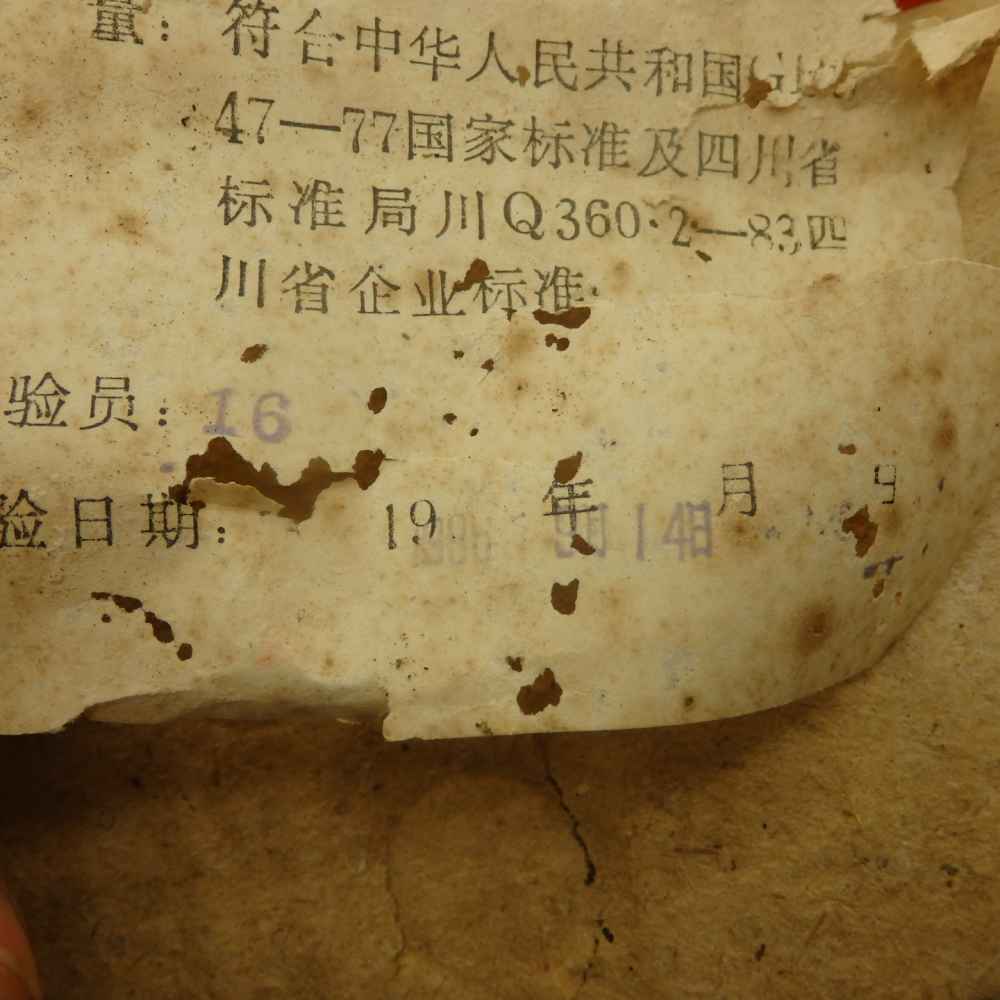 量：符合中华人民共和国
47—77国家标准及四川省
标准局川Q360·2—83四
川省企业标准
验员：16
验日期：19 年 月 日
9月14日